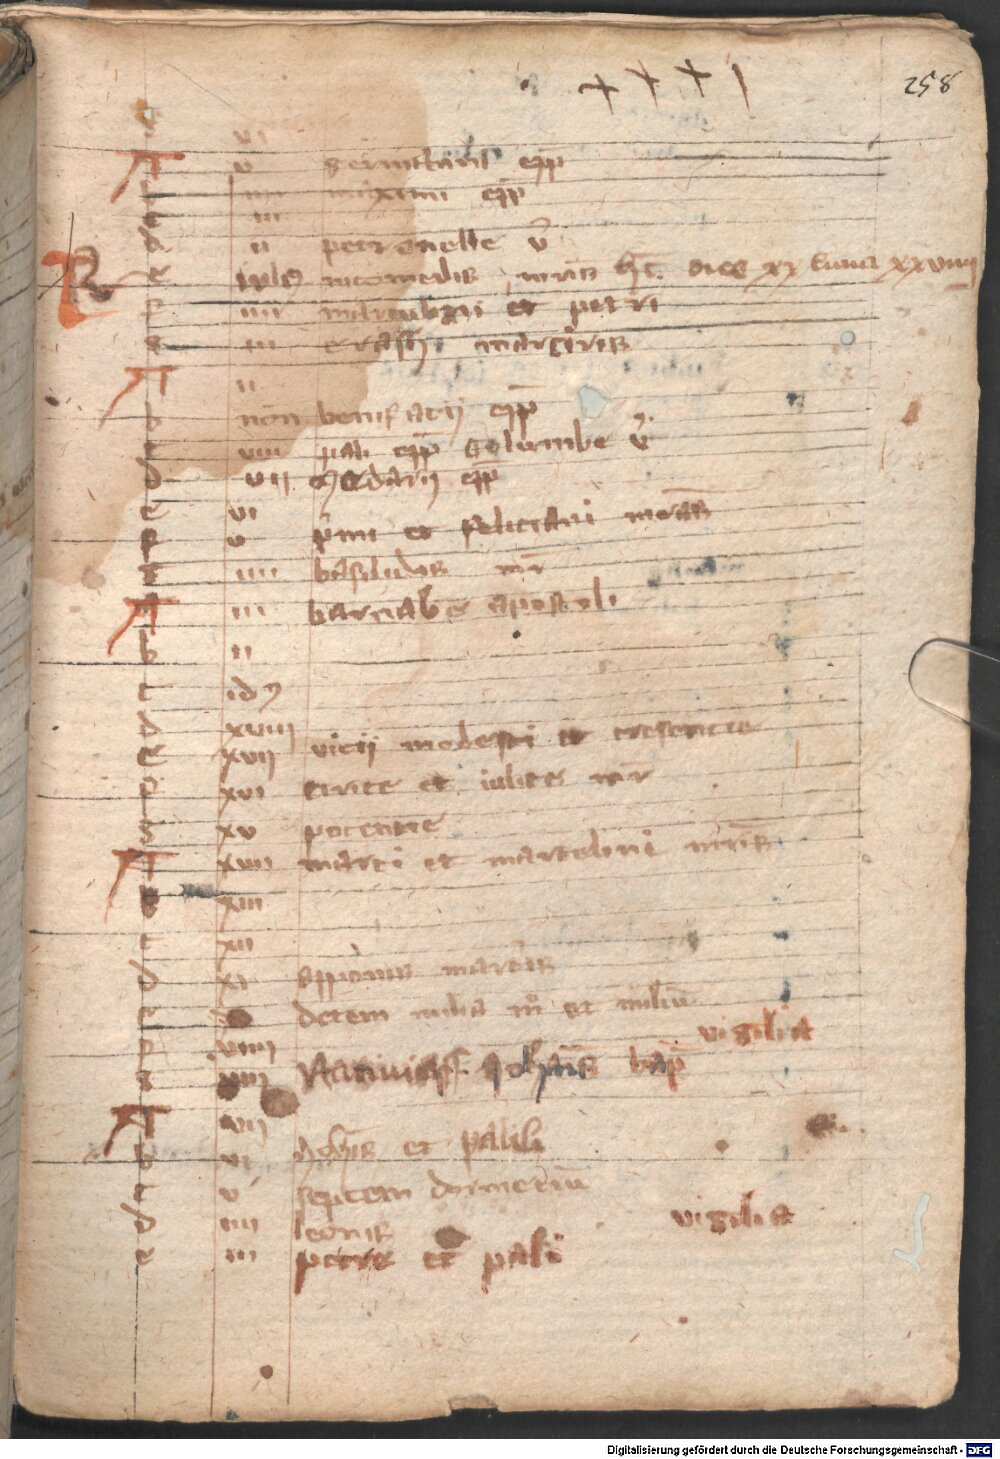 258
vi
A v germani epī
b iiii maximi epī
c iii
d ii petronelle v̄
e klꝫ nicomedis mrīs hꝫ dies xx luna xxviiii
f iiii marcellini et petri
g iii erasmi martiris
A ii
b non bonifacii epī
c viii pali epī Columbe v̄
d vii medardi epī
e vi
f v primi et feliciani mrās
g iiii basilidis mr̄
A iii barnabe apostoli
b ii
c idꝯ
d xviii
e xvii viti modesti et crescencie
f xvi cirice et iulite mr̄
g xv potencie
A xiiii marci et marceliani mrīs
b xiii
c xii
d xi martiris
e x decem milia mꝝ et miliū
f viiii vigilia
g viii Nativitas Johānis bap̄
A vii
b vi Johīs et paluli
c v septem dormenciū
d iiii leonis vigilia
e iii petre et pali
Digitalisierung gefördert durch die Deutsche Forschungsgemeinschaft - DFG